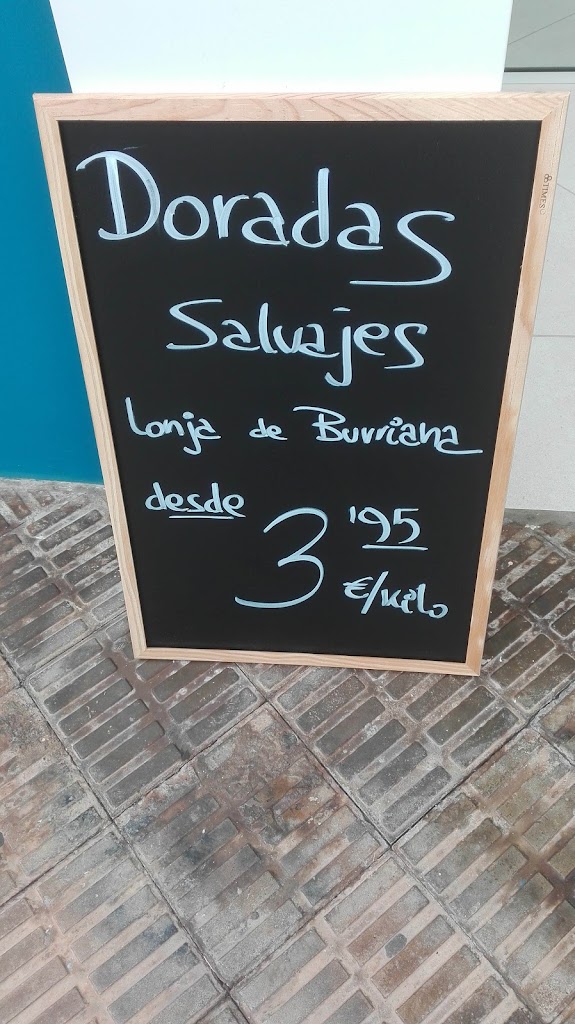 Doradas
Salvajes
Lonja de Burriana
desde 3'95
€/kilo
TIMES